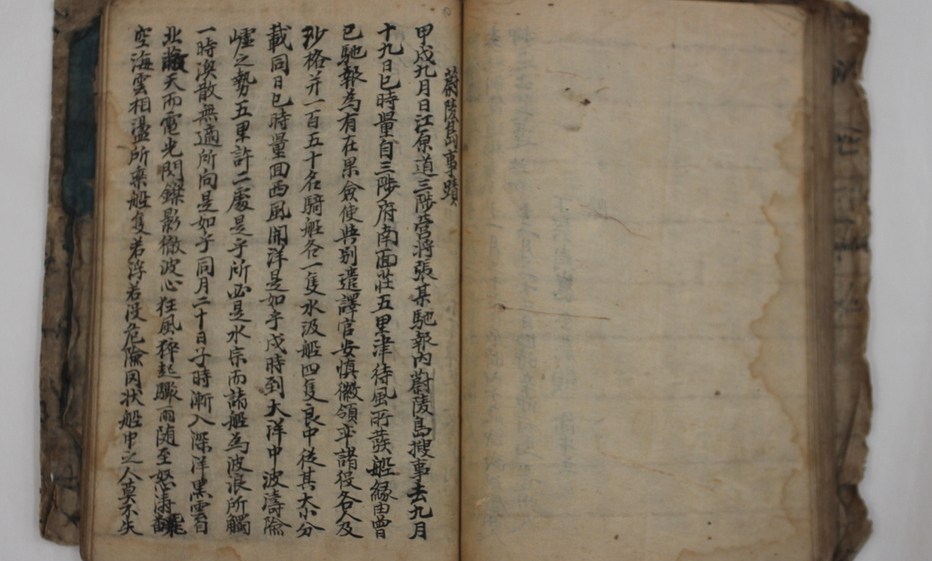 蔚陵島事蹟
甲戌九月日江原道三陟營將張某馳報內蔚陵島搜事去九月
十九日巳時量自三陟府南面莊五里津待風所發船緣由曾
已馳報為有在果僉使與別遣譯官安慎徽領率諸役各人及
沙格并一百五十名騎船各一隻水汲船四隻良中從其大小分
載同日巳時量回西風開洋是如乎戌時到大洋中波濤險
巇之勢五里許二處是乎所必是水宗而諸船為波浪所觸
一時渙散無適所向是如乎同月二十日子時漸入深洋黑雲自
北蔽天而電光閃鑠影徹波心狂風猝起驟雨隨至怒濤翻
空海雲相盪所乘船隻若浮若沒危險罔狀船中之人莫不失